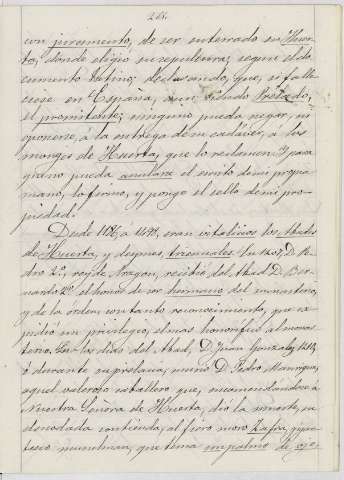 261.
con juramento, de ser enterrado en Huer-
ta, donde eligió su sepultura; segun el do-
cumento latino; declarando, que, si falle-
ciese en España, aun siendo Prelado,
el promitente; ninguno pueda negar, ni
oponerse, á la entrega de mi cadáver, á los
monges de Huerta, que lo reclamen. Y para
que no pueda anularse el siento de mi propia
mano, lo firmo, y pongo el sello de mi pro-
piedad.
Desde 1186 á 1498, eran vitalicios los Abades
de Huerta, y despues, trienales. En 1201, D. Pe-
dro 2º, rey de Aragon, recibió del Abad D. Ber-
nardo 2º el honor de ser hermano del monasterio,
y de la órden, con tanto reconocimiento, que ex-
pidió un privilegio, el mas honorífico al monas-
terio. En los dias del Abad, D. Juan Gonzalez,
ó durante su prelacia, murió D. Pedro Manrique,
aquel valeroso caballero que, encomendandose á
Nuestra Señora de Huerta, dió la muerte, en
denodada contienda, al fiero moro Zafra, gigan-
tesco musulman, que tenia un palmo de ojo